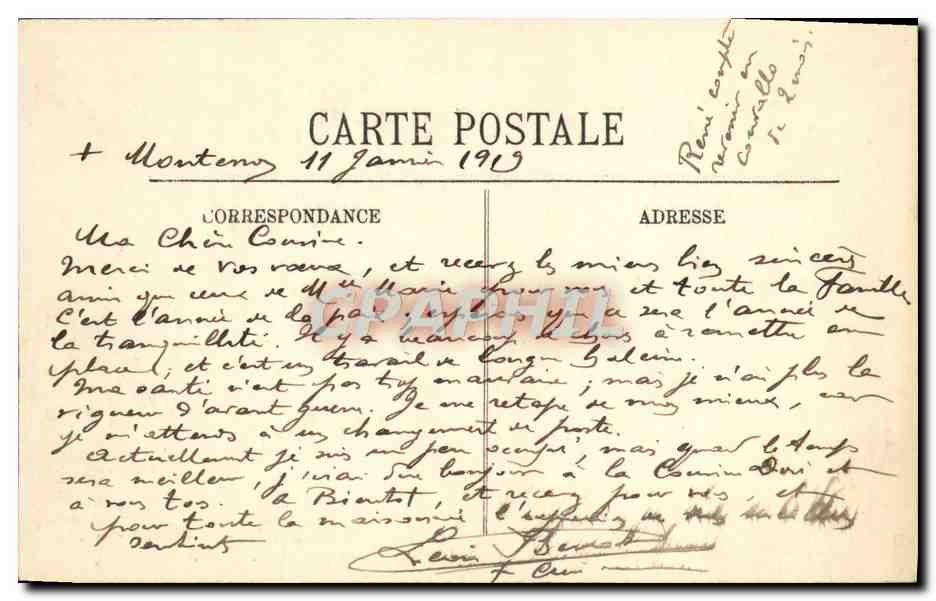 René compte
revenir en
de 2 mois.
CARTE POSTALE
+ Montenoy 11 Janvier 1919
CORRESPONDANCE
ADRESSE
Ma Chère Cousine.
Merci de vos voeux, et recevez les miens bien sincères
ainsi que ceux de Marie pour vous et toute la famille
C'est l'année de la paix, espérons que ce sera l'année de
la tranquillité. Il y a beaucoup de choses à remettre en
place, et c'est un travail de longue haleine.
Ma santé n'est pas trop mauvaise, mais je n'ai plus la
vigueur d'avant guerre. Je me retape de mon mieux, car
je m'attends à un changement de poste.
Actuellement je suis un peu occupé, mais quand le temps
sera meilleur, j'irai dire bonjour à la Cousine et
à vous tos. A Bientôt, et recevez pour vous, et
pour toute la maisonnée l'
CPARAPHIL
CPAPHIL.COM